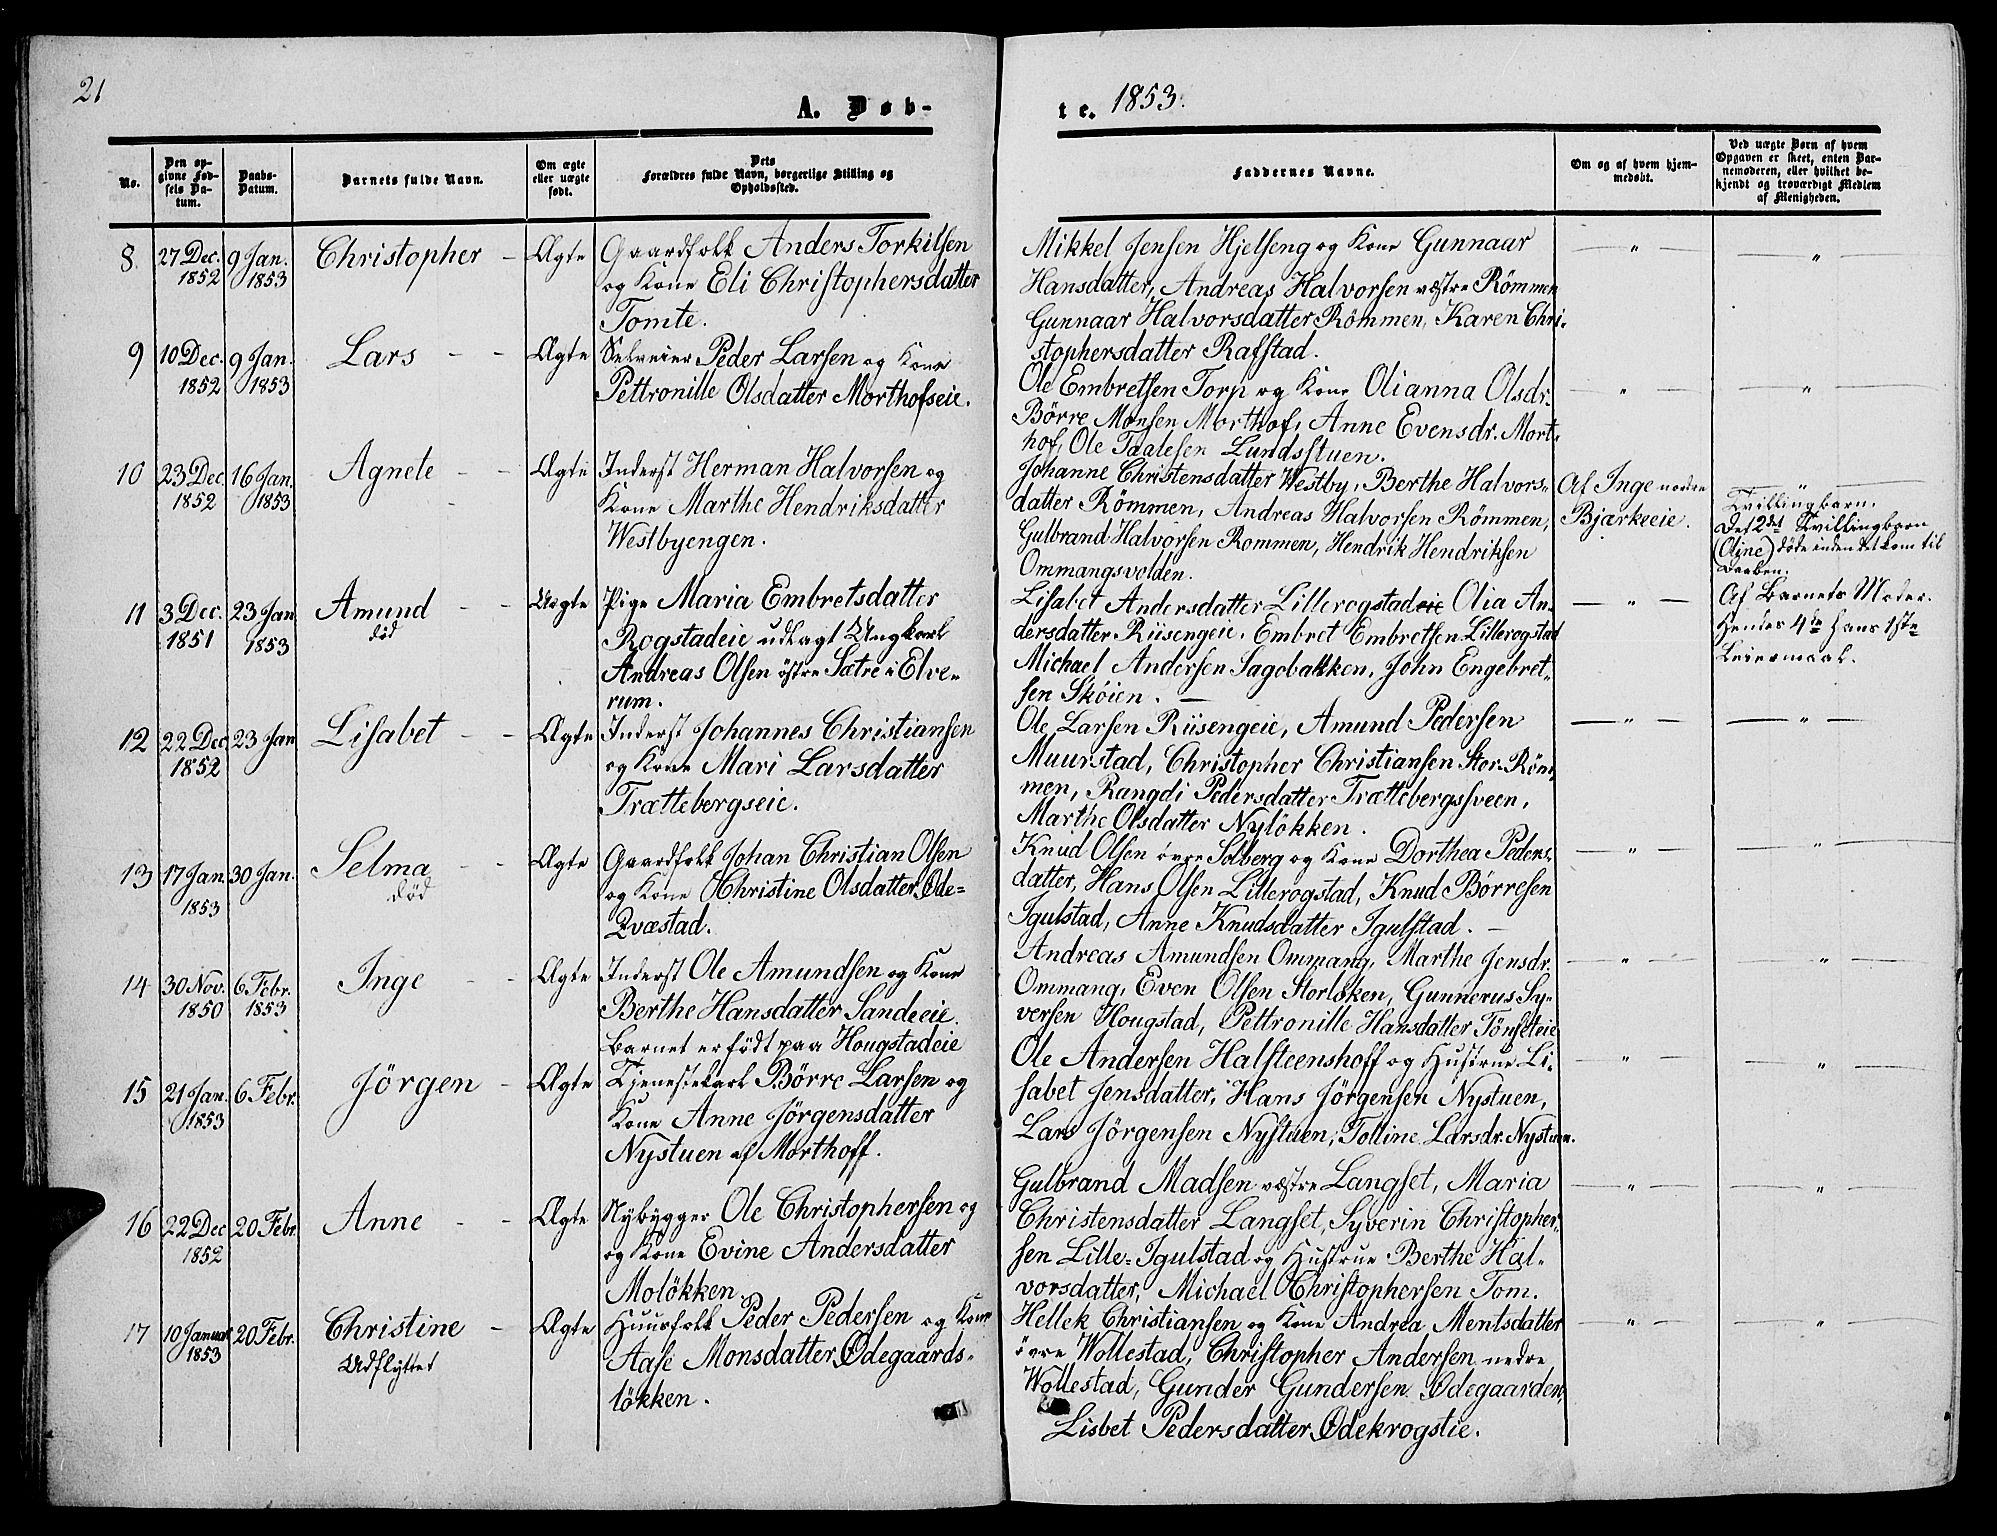 21
A. Døb-
te. 1853.
No.
Den op-
givne Fød-
sels Da-
tum.
Daabs-
Datum.
Barnets fulde Navn.
Om ægte
eller uægte
født.
Dets
Forældres fulde Navn, borgerlige Stilling og
Opholdssted.
Faddernes Navne.
Om og af hvem hjem-
medøbt.
Ved uægte Børn af hvem
Opgaven er skeet, enten Bar-
nemoderen, eller hvilket be-
kjendt og troværdigt Medlem
af Menigheden.
8. 27 Dec. 1852 9 Jan. 1853 Christopher - Ægte
Gaardfolk Anders Torkilsen
og Kone Eli Christophersdatter
Tomte.
Mikkel Jensen Hjelseng og Kone Gunnaur
Hansdatter, Andreas Halvorsen væstre Römmen
Gunnaar Halvorsdatter Römmen, Karen Chri-
stophersdatter Rafstad.
— " — — " —
9 10 Dec. 1852 9 Jan. 1853 Lars - - Ægte
Selveier Peder Larsen og Kone
Pettronille Olsdatter Morthofseie.
Ole Embretsen Torp og Kone Olianna Olsdr.
Börre Monsen Morthof, Anne Evensdr. Mort-
hof, Ole Paalesen Lundsstuen.
— " — — " —
10 23 Dec. 1852 16 Jan. 1853 Agnete - - Ægte
Inderst Herman Halvorsen og
Kone Marthe Hendriksdatter
Westbyengen.
Johanne Christensdatter Westby, Berthe Halvors-
datter Römmen, Andreas Halvorsen Römmen,
Gulbrand Halvorsen Rommen, Hendrik Hendriksen
Ommangsvolden.
Af Inge nordre
Bjærkeeie.
Tvillingbarn.
Det 2det Tvillingbarn
(Oline) døde inden det kom til
Daaben.
11 3 Dec. 1851 23 Jan 1853 Amund - - Uægte
död
Pige Maria Embretsdatter
Rogstadeie udlagt Ungkarl
Andreas Olsen östre Sætre i Elve-
rum.
Lisabet Andersdatter Lillerogstadeie Olia An-
dersdatter Riisengeie, Embret Embretsen Lillerogstad
Michael Andersen Sagobakken, John Engebret-
sen Sköien. —
— " —
Af Barnets Moder.
Hendes 4de Hans 1ste
Leiermaal.
12 22 Dec 1852 23 Jan Lisabet - - Ægte
Inderst Johannes Christiansen
og Kone Mari Larsdatter
Trættebergseie.
Ole Larsen Riisengeie, Amund Pedersen
Muurstad, Christopher Christiansen Stor-Röm-
men, Rangdi Pedersdatter Trættebergssveen,
Marthe Olsdatter Nylökken.
— " — — " —
13 17 Jan. 1853 30 Jan. Selma - - Ægte
död
Gaardfolk Johan Christian Olsen
og Kone Christine Olsdatter Øde-
Qvæstad.
Knud Olsen övre Solberg og Kone Dorthea Peders-
datter, Hans Olsen Lillerogstad, Knud Börresen
Igulstad, Anne Knudsdatter Igulstad. —
— " — — " —
14 30 Nov. 1850 6 Febr. 1853 Inge - - Ægte
Inderst Ole Amundsen og Kone
Berthe Hansdatter Sandeeie.
Barnet er født paa Hougstadeie
Andreas Amundsen Ommang, Marthe Jensdr.
Ommang, Even Olsen Storløken, Gunnerus Sy-
versen Hougstad, Pettronille Hansdatter Tönseteie
— " — — " —
15 21 Jan. 1853 6 Febr. Jörgen - Ægte
Tjenestekarl Börre Larsen og
Kone Anne Jörgensdatter
Nystuen af Morthoff.
Ole Andersen Halsteenshoff og Hustrue Li-
sabet Jensdatter, Hans Jörgensen Nystuen,
Lars Jörgensen Nystuen, Tolline Larsdr. Nystuen.
— " — — " —
16 22 Dec 1852 20 Febr. Anne - - Ægte
Nybygger Ole Christophersen og
og Kone Evine Andersdatter
Molökken.
Gulbrand Madsen væstre Langset, Maria
Christensdatter Langset, Syverin Christopher-
sen Lille-Igulstad og Hustrue Berthe Hal-
vorsdatter, Michael Christophersen Tom.
— " — — " —
17 10 Januar 1853 20 Febr. Christine - Ægte
Udflyttet
Huusfolk Peder Pedersen og Kone
Aase Monsdatter Ødegaards-
lökken.
Hellek Christiansen og Kone Andrea Mentsdatter
övre Wollestad, Christopher Andersen nedre
Wollestad, Gunder Gundersen Ødegaarden,
Lisbet Pedersdatter Ødekrogstie.
— " — — " —